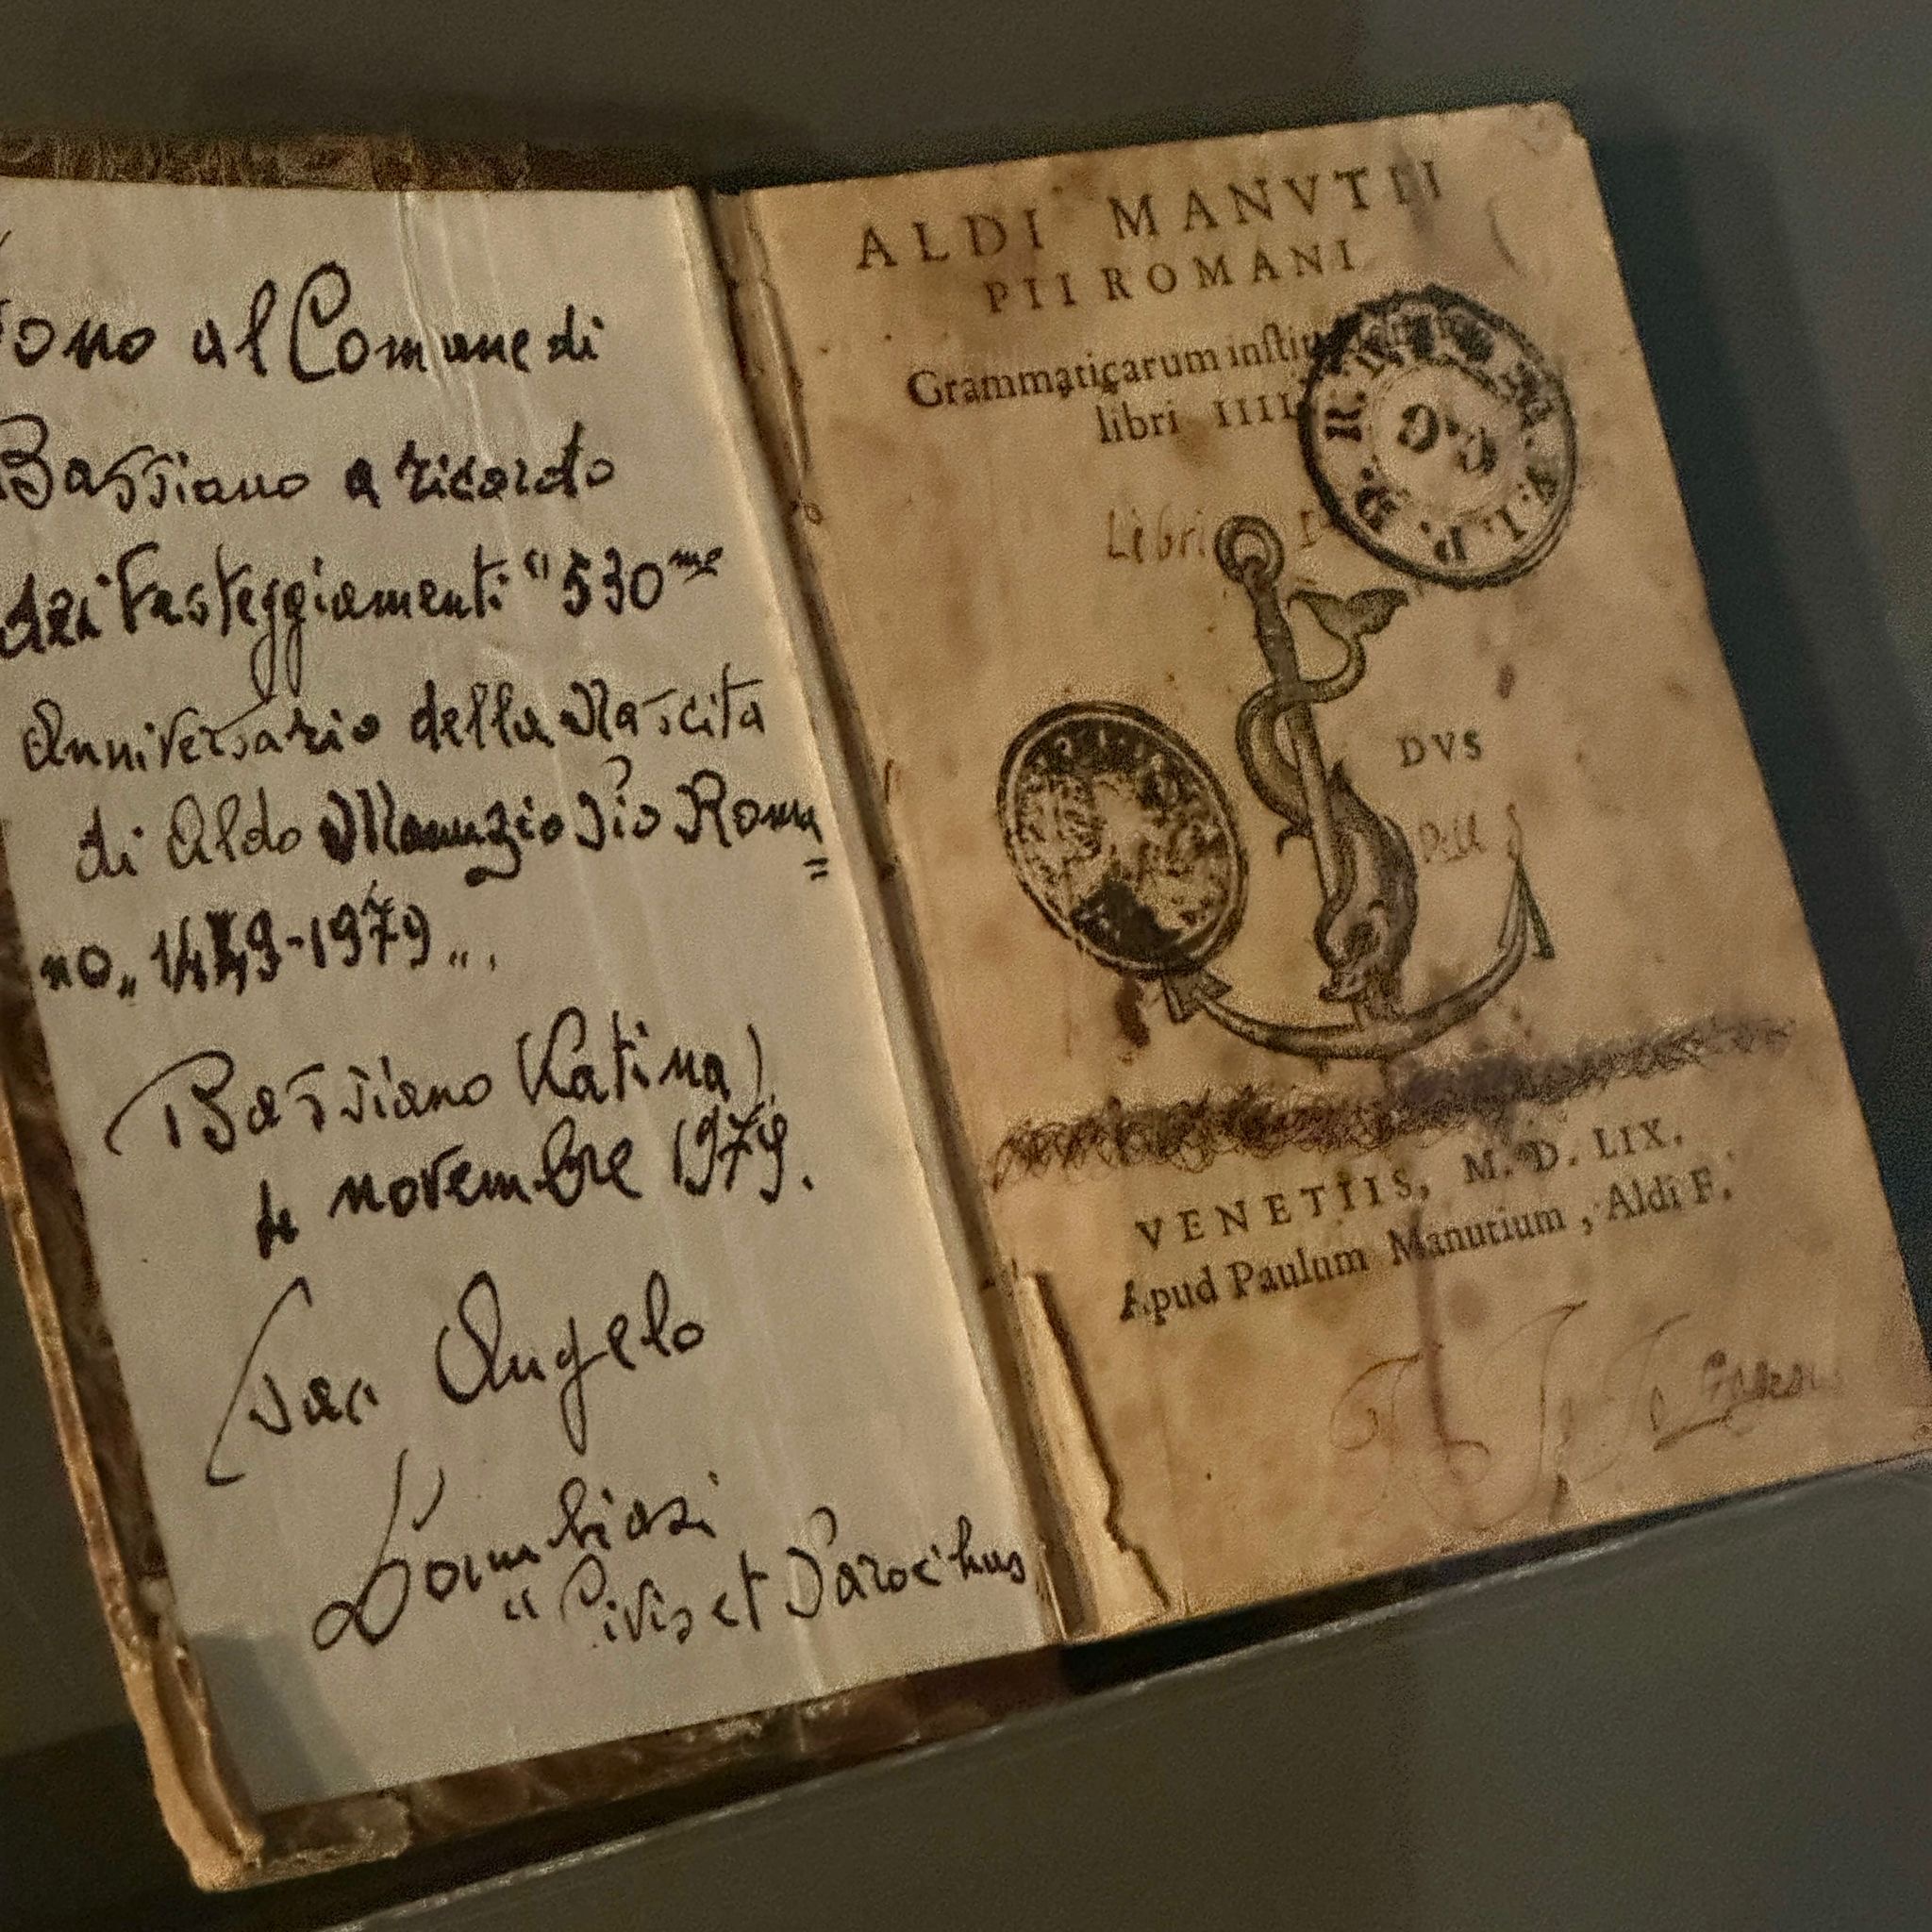 ono al Comune di
Bassiano a ricordo
dei festeggiamenti "530mo
Anniversario della Nascita
di Aldo Manuzio Pio Roma=
no„ 1449-1979„.
Bassiano (Latina)
novembre 1979.
Sac. Angelo
Lombiasi
"Civis et Parochus
ALDI MANVTII
PII ROMANI
Grammaticarum institu
libri IIII
Libri
DVS
VENETIIS, M. D. LIX.
Apud Paulum Manutium, Aldi F.